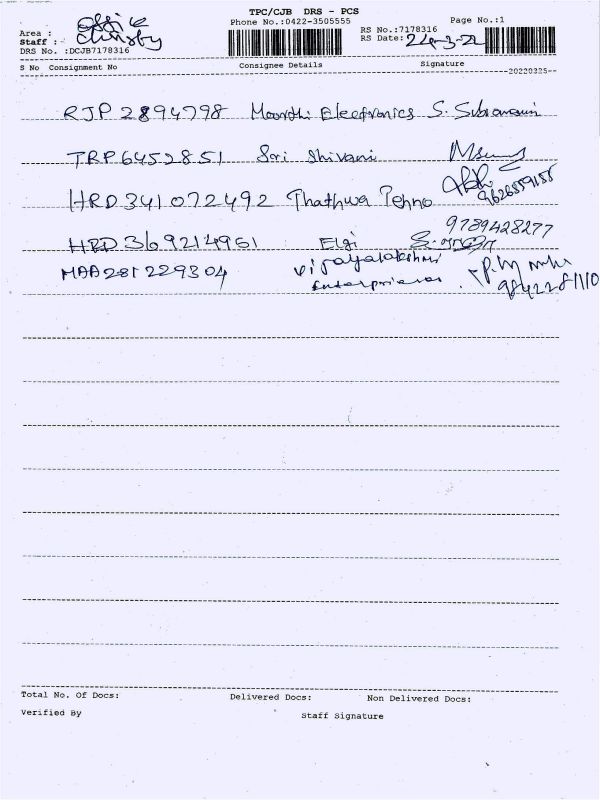 TPC/CJB DRS - PCS
Phone No.:0422-3505555 Page No.:1
Area : office
Staff :
RS No.:7178316
RS Date: 24-3-22
DRS No. :DCJB7178316
S No Consignment No Consignee Details Signature
20220325
RJP 2894798 Moorthi Electronics S. Subramani
TRP6452851 Sri Shivani
HRD341072492 Thathwa Tehno 9626559155
9789428277
HRD369214951 Elgi
MAA281229304 Vijayalakshmi
Enterprises 9842281110
Total No. Of Docs: Delivered Docs: Non Delivered Docs:
Verified By Staff Signature